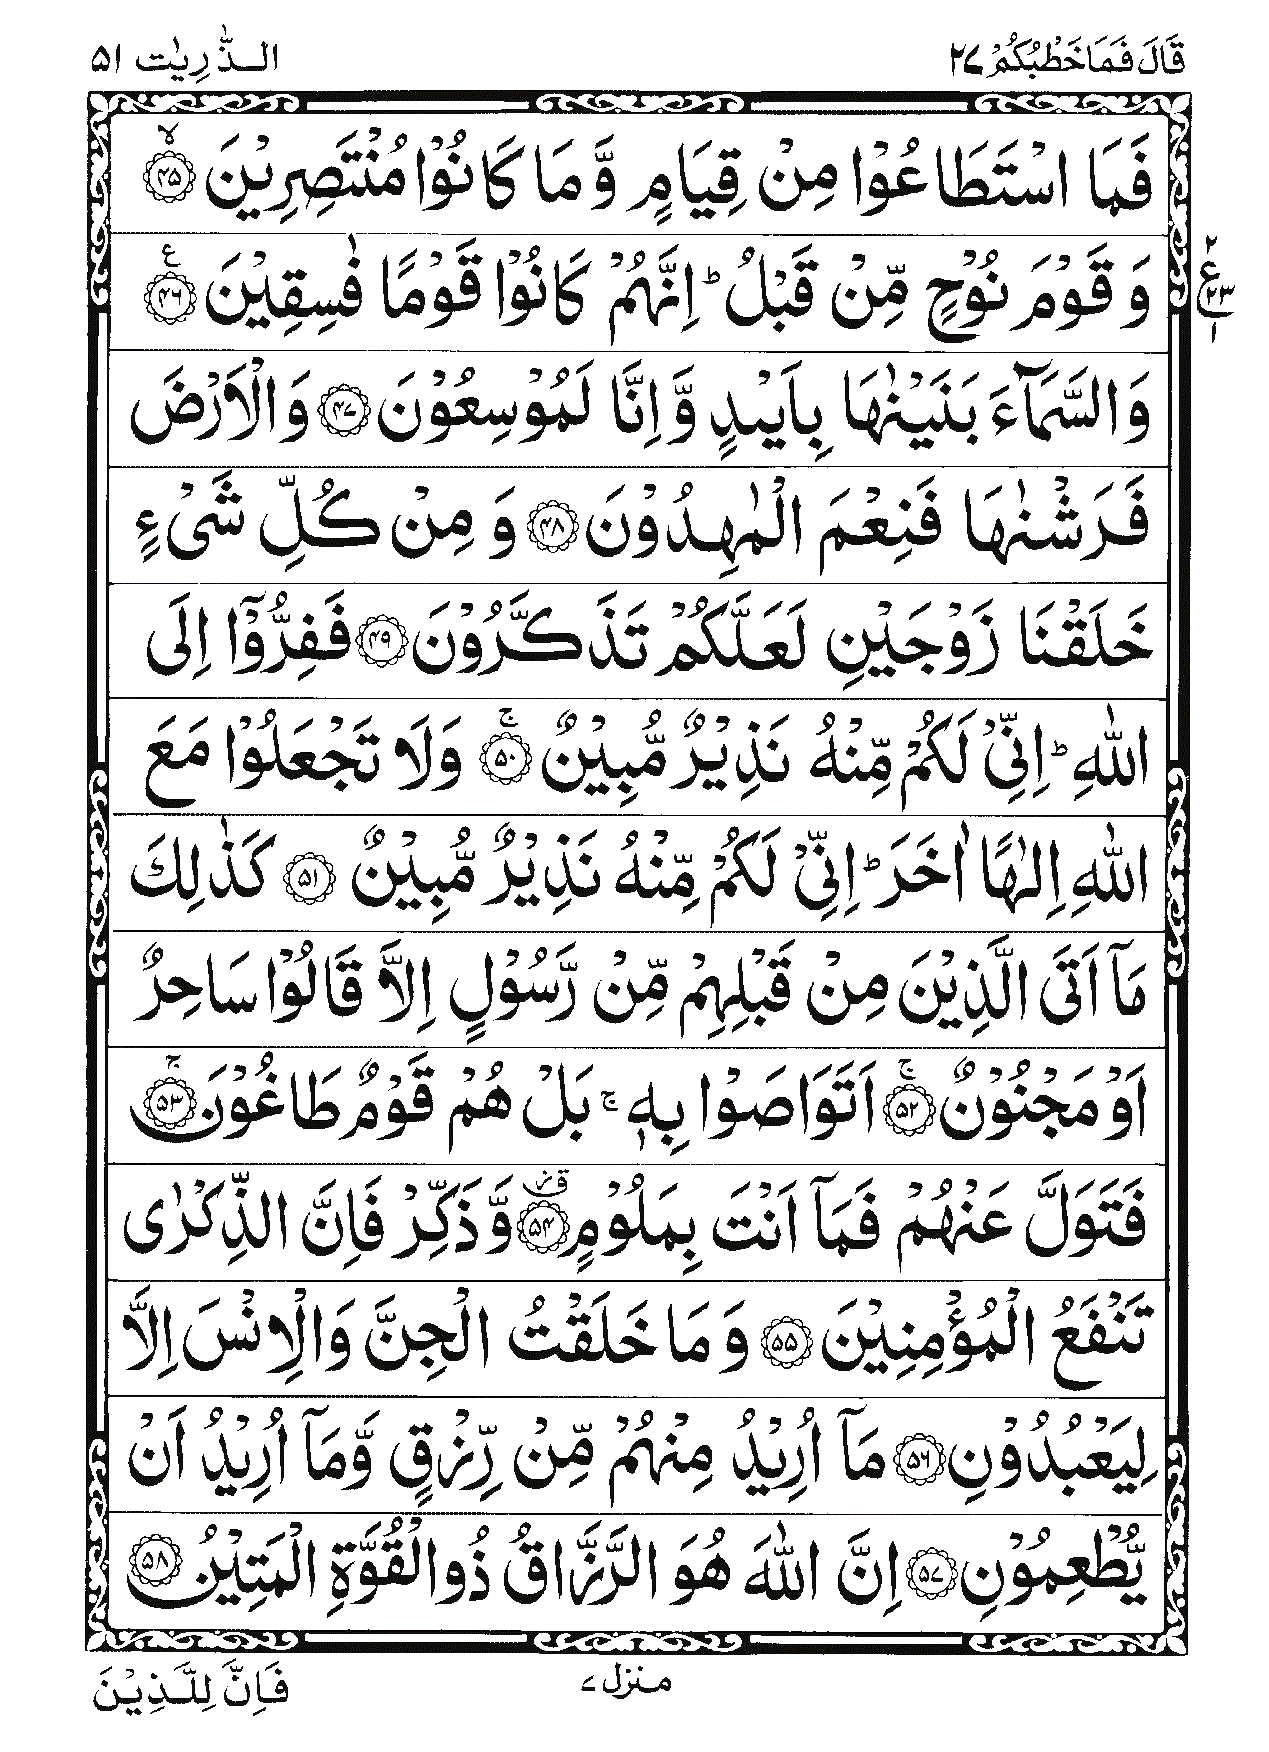 قَالَ فَمَا خَطْبُكُمْ ٢٧
الذّٰرِيٰت ٥١
فَمَا اسْتَطَاعُوْا مِنْ قِيَامٍ وَّ مَا كَانُوْا مُنْتَصِرِيْنَ ۙ‏﴿۴۵﴾
وَ قَوْمَ نُوْحٍ مِّنْ قَبْلُ ؕ اِنَّهُمْ كَانُوْا قَوْمًا فٰسِقِيْنَ ﴿۴۶﴾ ع
٢
ع
٢٣
١
وَالسَّمَآءَ بَنَيْنٰهَا بِاَيْىدٍ وَّ اِنَّا لَمُوْسِعُوْنَ ﴿۴۷﴾ وَالْاَرْضَ
فَرَشْنٰهَا فَنِعْمَ الْمٰهِدُوْنَ ﴿۴۸﴾ وَ مِنْ كُلِّ شَىْءٍ
خَلَقْنَا زَوْجَيْنِ لَعَلَّكُمْ تَذَكَّرُوْنَ ﴿۴۹﴾ فَفِرُّوْٓا اِلَى
اللّٰهِ ؕ اِنِّىْ لَكُمْ مِّنْهُ نَذِيْرٌ مُّبِيْنٌ ۚ‏﴿۵۰﴾ وَلَا تَجْعَلُوْا مَعَ
اللّٰهِ اِلٰهًا اٰخَرَ ؕ اِنِّىْ لَكُمْ مِّنْهُ نَذِيْرٌ مُّبِيْنٌ ﴿۵۱﴾ كَذٰلِكَ
مَآ اَتَى الَّذِيْنَ مِنْ قَبْلِهِمْ مِّنْ رَّسُوْلٍ اِلَّا قَالُوْا سَاحِرٌ
اَوْ مَجْنُوْنٌ ۚ‏﴿۵۲﴾ اَتَوَاصَوْا بِهٖ ۚ بَلْ هُمْ قَوْمٌ طَاغُوْنَ ۚ‏﴿۵۳﴾
فَتَوَلَّ عَنْهُمْ فَمَآ اَنْتَ بِمَلُوْمٍ ﴿۵۴﴾ وَّ ذَكِّرْ فَاِنَّ الذِّكْرٰى
تَنْفَعُ الْمُؤْمِنِيْنَ ﴿۵۵﴾ وَ مَا خَلَقْتُ الْجِنَّ وَالْاِنْسَ اِلَّا
لِيَعْبُدُوْنِ ﴿۵۶﴾ مَآ اُرِيْدُ مِنْهُمْ مِّنْ رِّزْقٍ وَّمَآ اُرِيْدُ اَنْ
يُّطْعِمُوْنِ ﴿۵۷﴾ اِنَّ اللّٰهَ هُوَ الرَّزَّاقُ ذُوالْقُوَّةِ الْمَتِيْنُ ﴿۵۸﴾
منزل ٧
فَاِنَّ لِلَّذِيْنَ